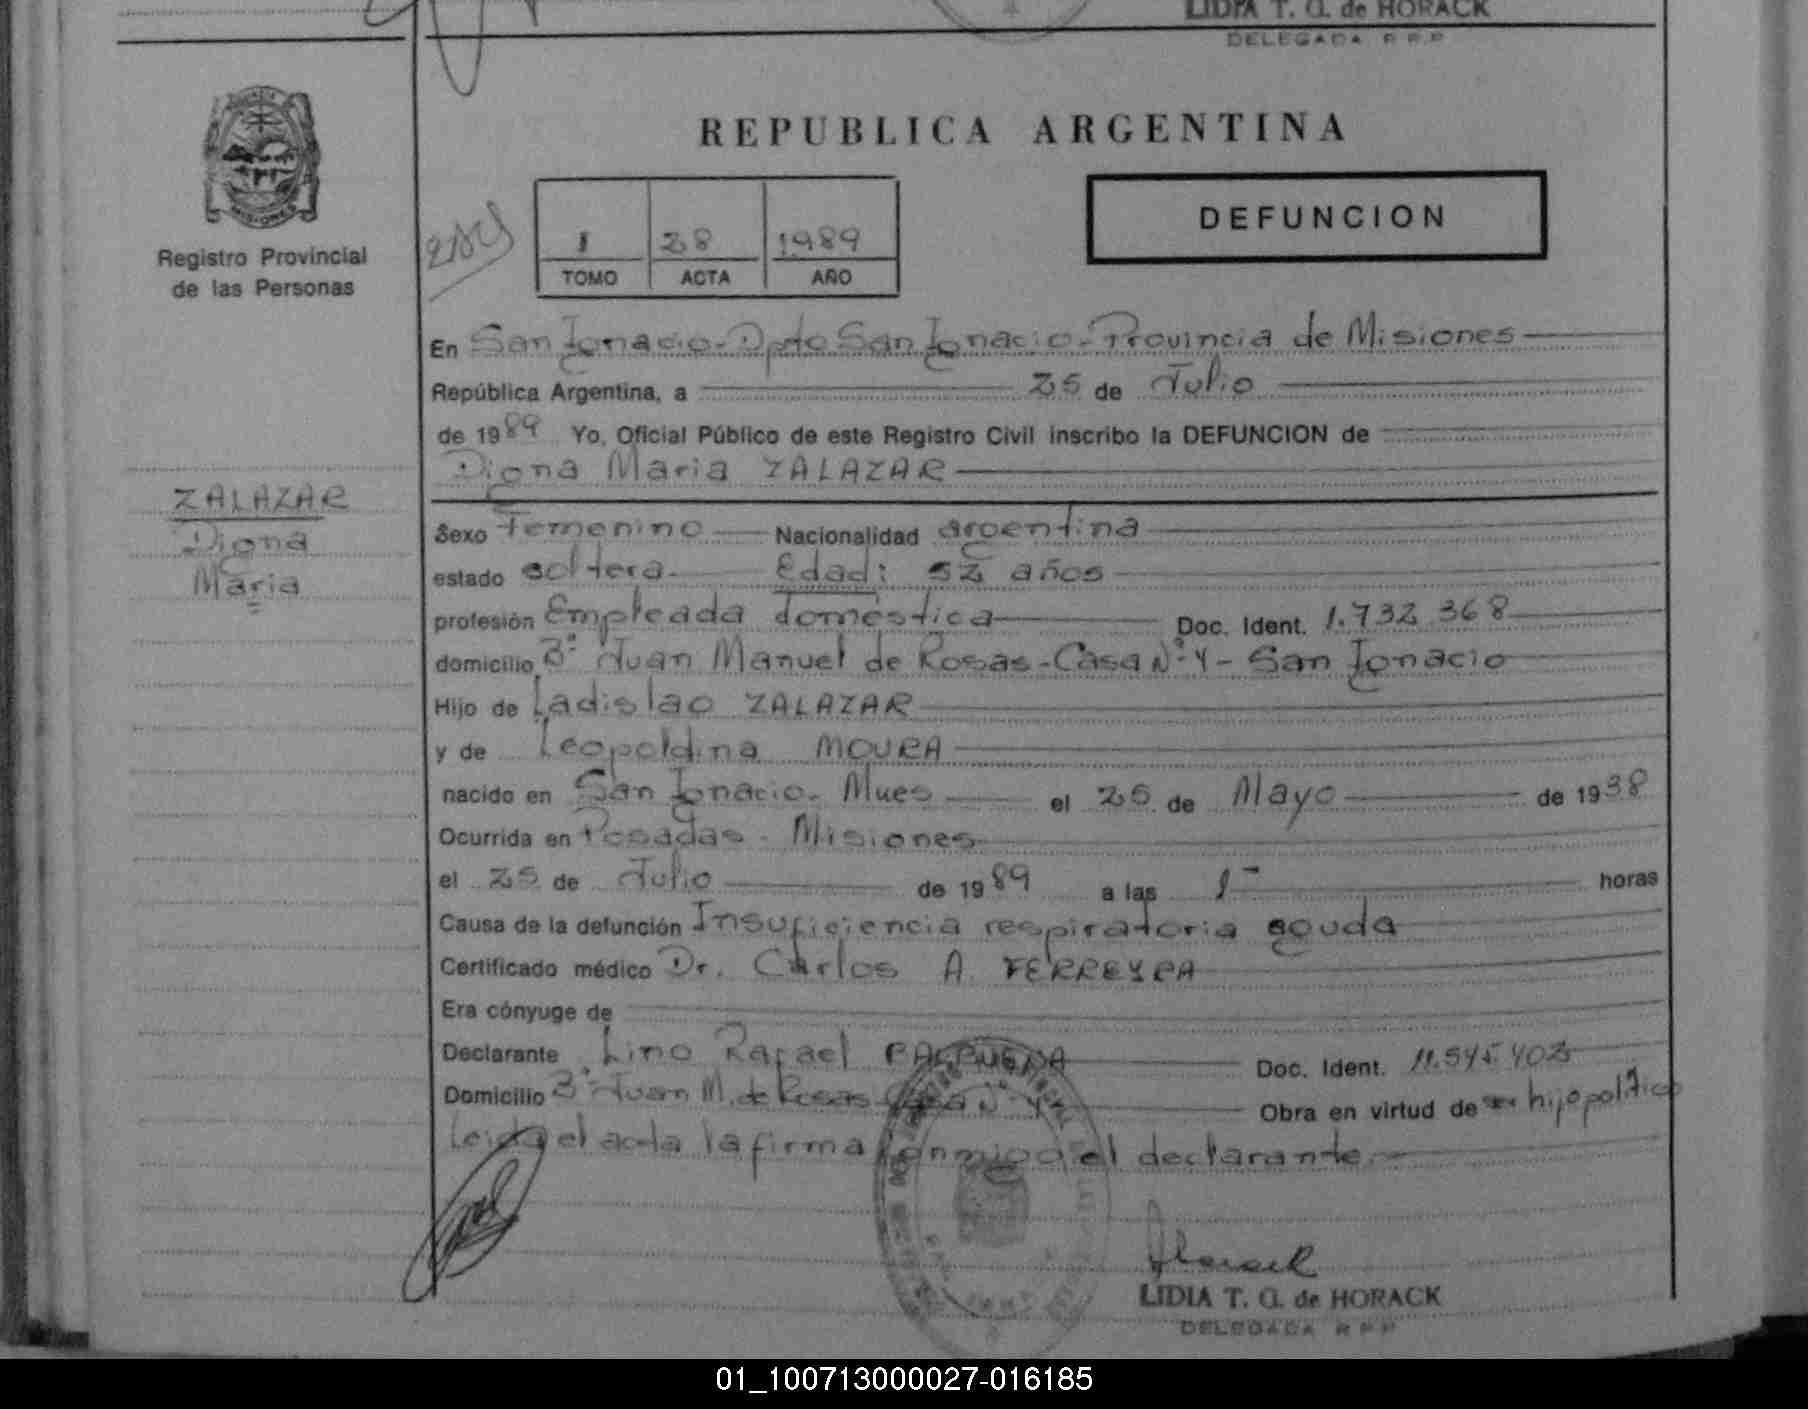 LIDIA T. G. de HORACK
DELEGADA R.P.P
REPUBLICA ARGENTINA
DEFUNCION
1 28 1989
TOMO ACTA AÑO
Registro Provincial
de las Personas
En San Ignacio - Dpto San Ignacio - Provincia de Misiones
República Argentina, a 25 de Julio
de 1989 Yo, Oficial Público de este Registro Civil inscribo la DEFUNCION de
Digna Maria ZALAZAR
ZALAZAR
Digna
Maria
Sexo Femenino Nacionalidad argentina
estado soltera. Edad: 52 años
profesión Empleada Doméstica Doc. Ident. 1.732.368
domicilio Bº Juan Manuel de Rosas - Casa Nº 4 - San Ignacio
Hijo de Ladislao ZALAZAR
y de Leopoldina MOURA
nacido en San Ignacio - Mnes el 25 de Mayo de 1938
Ocurrida en Posadas - Misiones
el 25 de Julio de 1989 a las 1 horas
Causa de la defunción Insuficiencia respiratoria aguda
Certificado médico Dr. Carlos A. FERREYRA
Era cónyuge de
Declarante Lino Rafael Doc. Ident. 11.545.402
Domicilio Bº Juan M. de Rosas Casa Nº 4 Obra en virtud de hijo politico
Leida el acta la firma conmigo el declarante.
LIDIA T. G. de HORACK
DELEGADA R.P.P
01_100713000027-016185